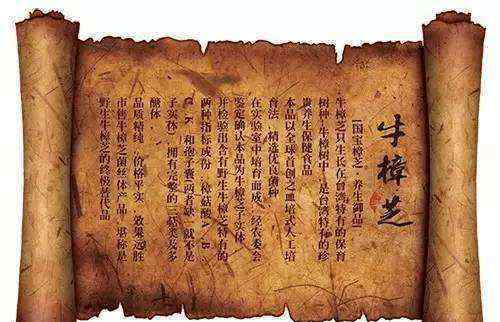 牛樟芝
[国宝樟芝·养生御品]
·牛樟芝只生长在台湾特有的保育
树种·牛樟树中·是台湾特有的珍
贵养生保健食品
本品以全球首创之皿培式人工培
育法·精选优良菌种
在实验室中培育而成·经农委会
鉴定确认本品为牛樟芝子实体
并检验出含有野生牛樟芝特有的
两种指标成份·樟菇酸A.B.
C.K 和孢子囊·两者缺·就不是
子实体·拥有完整的 菇类及多
醣体·
品质精纯·价格平实·效果远胜
市售牛樟芝菌丝体产品·堪称是
野生牛樟芝的终极替代品